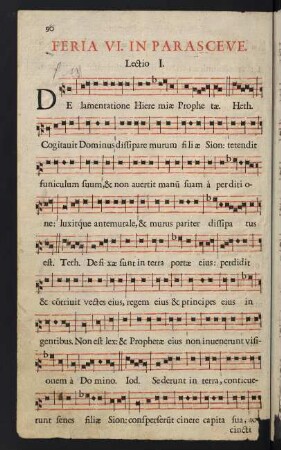 96
FERIA VI. IN PARASCEVE.
Lectio I.
DE lamentatione Hiere miæ Prophe tæ. Heth.
Cogitavit Dominus dissipare murum filiæ Sion: tetendit
funiculum suum, & non avertit manū suam à perditi o-
ne: luxitque antemurale, & murus pariter dissipa tus
est. Teth. Defi xæ sunt in terra portæ eius: perdidit
& cōtrivit vectes eius, regem eius & principes eius in
gentibus. Non est lex: & Prophetæ eius non invenerunt visi-
onem à Do mino. Iod. Sederunt in terra, conticue-
runt senes filiæ Sion: consperserūt cinere capita sua, ac-
cincti